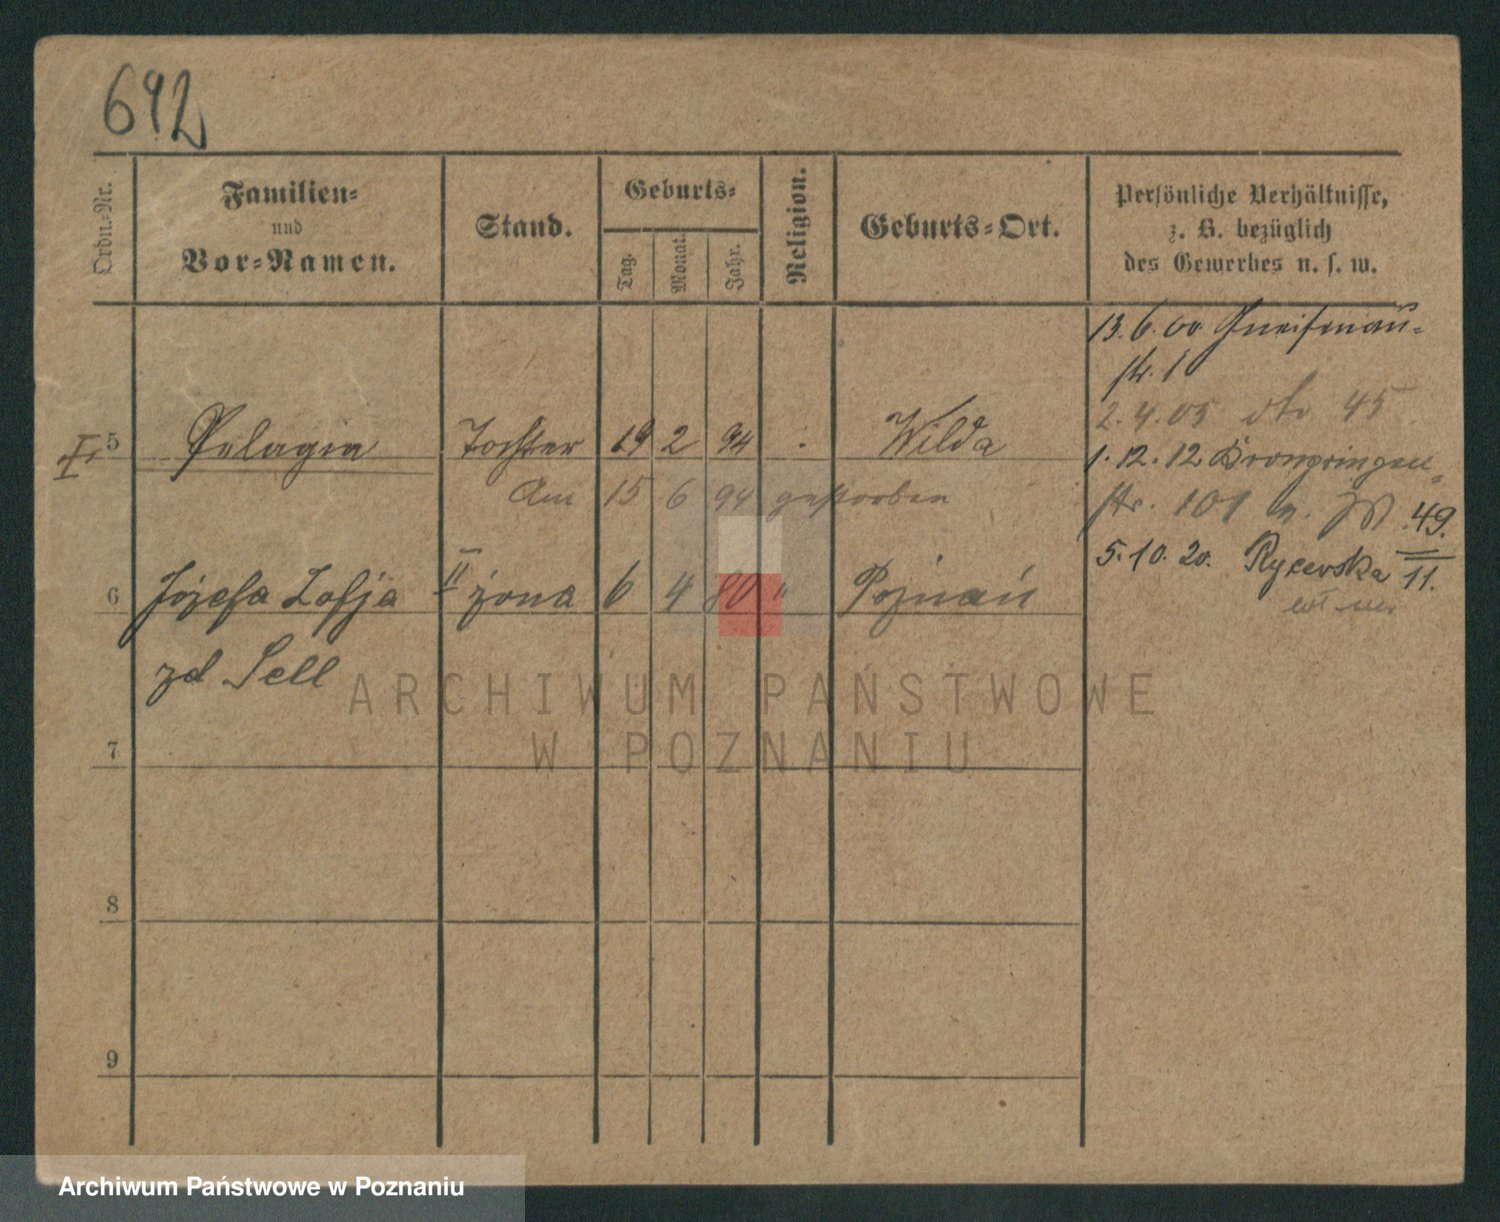 692
Ordn.-Nr.
Familien-
und
Vor-Namen.
Stand.
Geburts-
Tag.
Monat.
Jahr.
Religion.
Geburts-Ort.
Persönliche Verhältnisse,
z. B. bezüglich
des Gewerbes u. s. w.
13. 6. 00 Gneisenau-
str. 1
2. 4. 05 dto 45
I. 5 Pelagia Tochter 19 2 94 . Wilda
1. 12. 12 Kronprinzen-
Am 15 6 94 gestorben
str. 101 49.
5. 10. 20. Rycerska 11.
6 Józefa Zofja II żona 6 4 80 " Poznań
zd Sell
ARCHIWUM PAŃSTWOWE
W POZNANIU
7
8
9
Archiwum Państwowe w Poznaniu